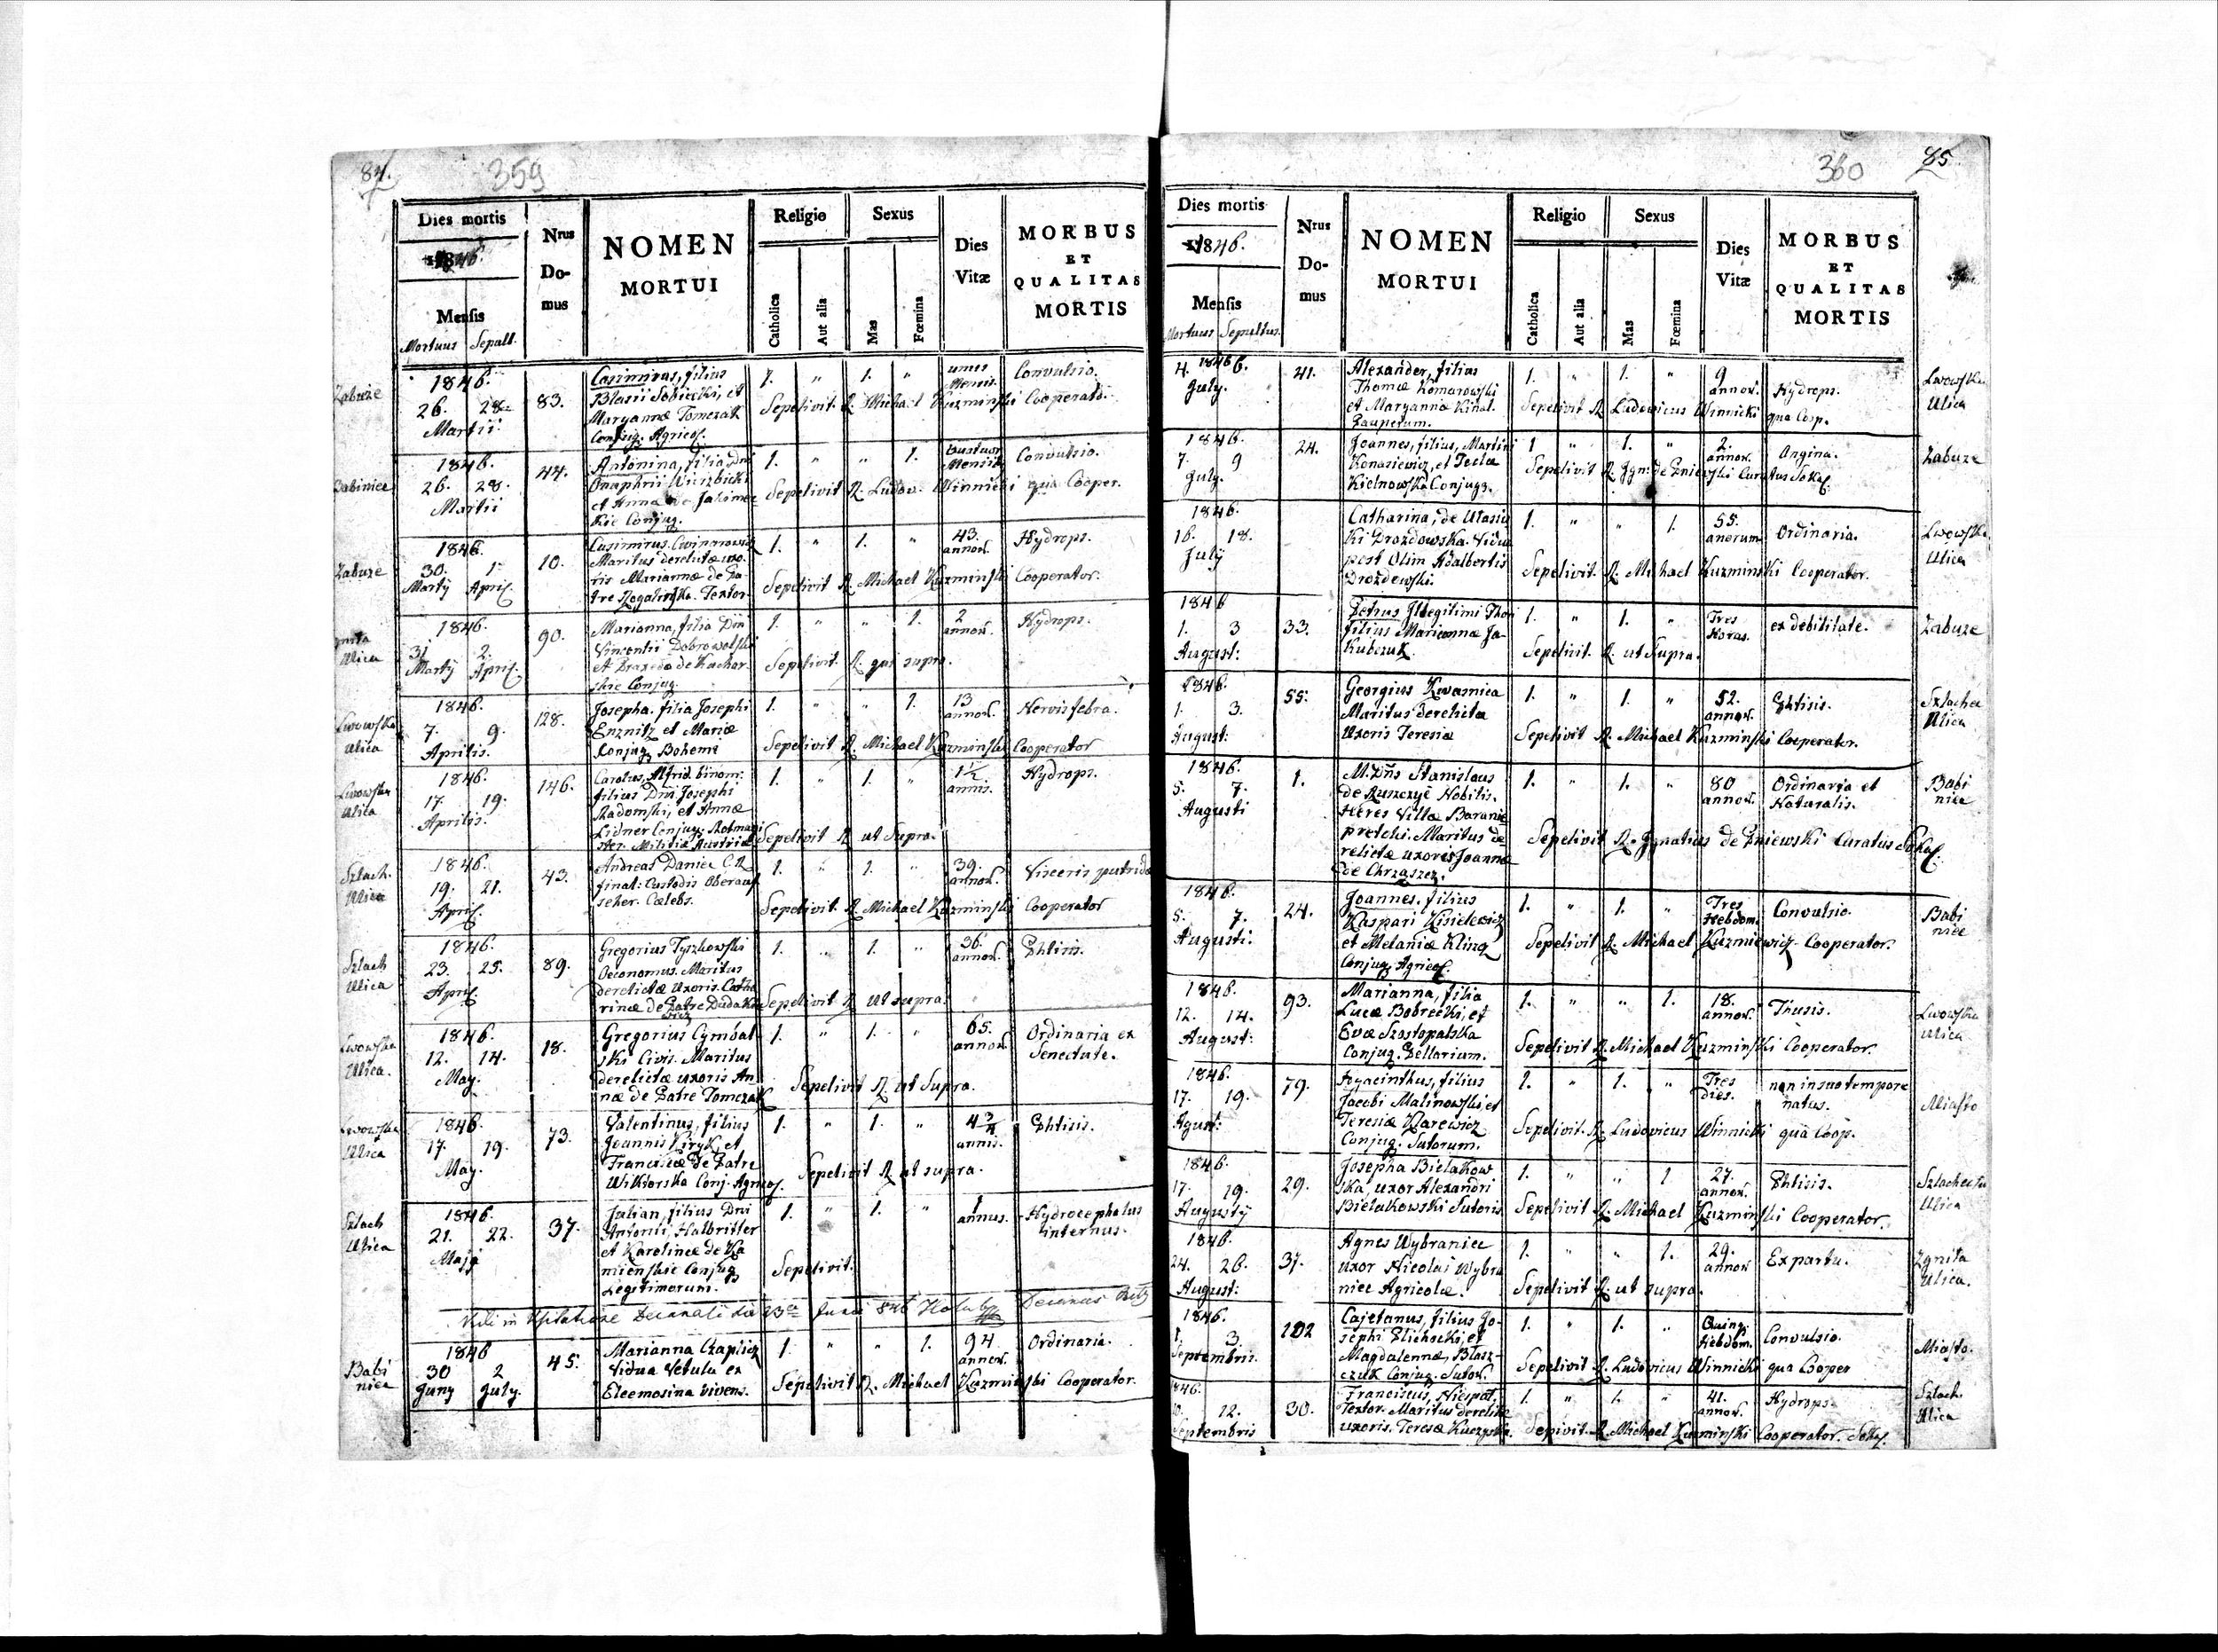 84.
359
Dies mortis
1846.
Mensis
Mortuus Sepult.
Nrus
Do-
mus
NOMEN
MORTUI
Religio
Catholica
Aut alia
Sexus
Mas
Fœmina
Dies
Vitæ
MORBUS
ET
QUALITAS
MORTIS
Zabuze
1846.
26. 28.
Martii
83.
Casimirus, filius
Blasii Sobiecki, et
Maryannæ Tomczak
Conjug. Agricol.
1. " 1. "
unius
Mensis.
Convulsio.
Sepelivit R. Michael Kuzminski Cooperator.
Babiniec
1846.
26. 28.
Martii
44.
Antonina, filia Dni
Onaphrii Wierzbicki
et Anna de
Conjug.
1. " " 1.
Mensis
Convulsio.
Sepelivit R. Ludov. Winnicki qua Cooper.
Zabuze
1846.
30. 1.
Marty April.
10.
Casimirus
Maritus derelictæ uxo-
ris Mariannæ de Pa-
tre Rogalinska. Textor
1. " 1. "
43.
annor.
Hydrops.
Sepelivit R. Michael Kuzminski Cooperator.
Ulica
1846.
31 2.
Marty April.
90.
Marianna, filia Dni
Vincentii Dobrowolski
et Praxeda de Kuchar-
skie Conjug.
1. " " 1.
2
annor.
Hydrops.
Sepelivit R. qui supra.
Lwowska
Ulica
1846.
7. 9.
Aprilis.
128.
Josepha. filia Josephi
Enznitz et Mariæ
Conjug. Bohemi
1. " " 1.
13
annor.
Nervis febra.
Sepelivit R. Michael Kuzminski Cooperator
Lwowska
Ulica
1846.
17. 19.
Aprilis.
146.
Carolus, Alfrid. binom:
filius Dni Josephi
Radomski, et Annæ
Lidner Conjug. Rotmagi
ster. Militiæ Austriæ
1. " 1. "
1½
annis.
Hydrops.
Sepelivit R. ut Supra.
Szlach.
Ulica
1846.
19. 21.
April.
43.
Andreas Daniec C.R.
finat: Custodis Oberauf
seher. Cælebs.
1. " 1. "
39.
annor.
Visceris putrida
Sepelivit R. Michael Kuzminski Cooperator
Szlach
Ulica
1846.
23. 25.
April.
89.
Gregorius Tyszkowski
Oeconomus. Maritus
derelictæ Uxoris. Catha
rinæ de Patre Dudake
wicz
1. " 1. "
36.
annor.
Phtisis.
Sepelivit R. ut supra.
Lwowska
Ulica.
1846.
12. 14.
May.
18.
Gregorius Cymbal-
ski Civis. Maritus
derelictæ uxoris An-
næ de Patre Tomczak
1. " 1. "
65.
annor.
Ordinaria ex
Senectute.
Sepelivit R. ut Supra.
Lwowska
Ulica
1846.
17. 19.
May.
73.
Valentinus, filius
Joannis Kiryk, et
Franciscæ de Patre
Wiktorska Conj. Agricol.
1. " 1. "
4¾
annis.
Phtisis.
Sepelivit R. ut supra.
Szlach
Ulica
1846.
21. 22.
Maja
37.
Julian, filius Dni
Antonii, Halbritter
et Karolinæ de Ka
mienskie Conjug
Legitimorum.
1. " 1. "
1
annus.
Hydrocephalus
internus.
Sepelivit.
Vidi in Visitatione Decanali die 23a Junii 846 Decanus
Babi
niec
1846
30 2
Juny July.
45.
Marianna Czaplicz
Vidua Vetula ex
Eleemosina vivens.
1. " " 1.
94
annor.
Ordinaria.
Sepelivit R. Michael Kuzminski Cooperator.
360
85
Dies mortis
1846.
Mensis
Mortuus Sepultus.
Nrus
Do-
mus
NOMEN
MORTUI
Religio
Catholica
Aut alia
Sexus
Mas
Fœmina
Dies
Vitæ
MORBUS
ET
QUALITAS
MORTIS
1846
4. 6.
July.
41.
Alexander, filius
Thomæ Komarowski
et Maryannæ Kinal.
Pauperum.
1. " 1. "
9
annor.
Hydrops.
Sepelivit R. Ludovicus Winnicki qua Coop.
Lwowska
Ulica
1846.
7. 9
July.
24.
Joannes, filius, Martini
Konasiewicz, et Tecla
Kielnowska Conjugs.
1 " 1. "
2.
annor.
Angina.
Sepelivit R. Ign: de Pniewski Curatus Sokal.
Zabuze
1846.
16. 18.
July
Catharina, de Utasiu
ki Drozdowska. Vidua
post Olim Adalbertis
Drozdewski.
1. " " 1.
55.
anorum
Ordinaria.
Sepelivit. R. Michael Kuzminski Cooperator.
Lwowska
Ulica
1846
1. 3
August:
33.
Petrus Illegitimi Thori
filius Mariannæ Ja-
kubczuk.
1. " 1. "
Tres
horas.
ex debilitate.
Sepelivit. R. ut Supra.
Zabuze
1846.
1. 3.
August:
55.
Georgius Kwasnica
Maritus derelictæ
Uxoris Teresiæ
1. " 1. "
52.
annor.
Phtisis.
Sepelivit R. Michael Kuzminski Cooperator.
Szlachec
Ulica
1846.
5. 7.
Augusti
1.
M. Dñs Stanislaus
de Ruszczyc Nobilis.
Heres Villæ Baranie
pretchi. Maritus de
relictæ uxoris Joannæ
de Chrząszcz.
1. " 1. "
80
annor.
Ordinaria et
Naturalis.
Sepelivit R. Ignatius de Pniewski Curatus Sokal.
Babi
niec
1846.
5. 7.
Augusti.
24.
Joannes. filius
Kaspari Kisielewicz
et Melaniæ Kling
Conjug. Agricol.
1. " 1. "
Tres
Hebdom.
Convulsio.
Sepelivit R. Michael Kuzmiewicz Cooperator.
Babi
niec
1846.
12. 14.
August:
93.
Marianna, filia
Lucæ Bobrecki, et
Evæ Szostopalska
Conjug. Pellarium.
1. " " 1.
18.
annor.
Thusis.
Sepelivit R. Michael Kuzminski Cooperator.
Lwowska
Ulica
1846.
17. 19.
Agust:
79.
Hyacinthus, filius
Jacobi Malinowski, et
Teresiæ Karewicz
Conjug. Sutorum.
1. " 1. "
Tres
dies.
non in suo tempore
natus.
Sepelivit. R. Ludovicus Winnicki quà Coop.
Miasto
1846.
17. 19.
Augusty
29.
Josepha Bielakow
ska, uxor Alexandri
Bielakowski Sutoris
1. " " 1
27.
annor.
Phtisis.
Sepelivit R. Michael Kuzminski Cooperator.
Szlachecka
Ulica
1846.
24. 26.
August:
37.
Agnes Wybraniec
uxor Nicolai Wybra
niec Agricolæ.
1. " " 1.
29.
annor
Ex partu.
Sepelivit R. ut supra.
Zgnita
Ulica.
1846.
1. 3.
Septembris.
102
Cajetanus, filius Jo-
sephi Plichocki, et
Magdalennæ, Błasz-
czuk Conjug. Sutor.
1. " 1. "
Quinq.
Hebdom.
Convulsio.
Sepelivit R. Ludovicus Winnicki qua Cooper
Miasto.
1846.
10. 12.
Septembris
30.
Franciscus, Niespał.
Textor. Maritus derelictæ
uxoris. Teresæ Kuczynska.
1. " 1. "
41.
annor.
Hydrops.
Sepivit. R. Michael Kuzminski Cooperator. Sokal.
Szlach.
Ulica